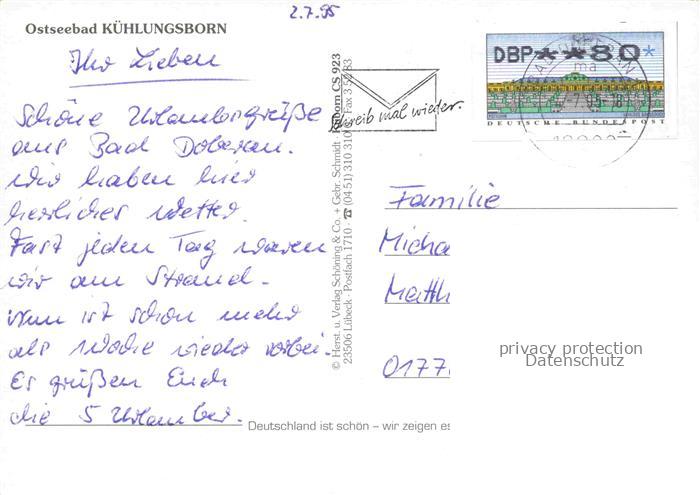 2.7.95
Ostseebad KÜHLUNGSBORN
Ihr Lieben
Schöne Urlaubsgrüße
aus Bad Doberan.
Wir haben hier
herrliches Wetter.
Fast jeden Tag waren
wir am Strand.
Nun ist schon mehr
als Woche wieder vorbei.
Es grüßen Euch
die 5 Urlauber.
© Herst. u. Verlag Schöning & Co. + Gebr. Schmidt
23506 Lübeck · Postfach 1710 · ☎ (04 51) 310 310
CS 923
Schreib mal wieder.
DBP**80*
DEUTSCHE BUNDESPOST
Familie
Micha
Matth
0177
privacy protection
Datenschutz
Deutschland ist schön – wir zeigen es